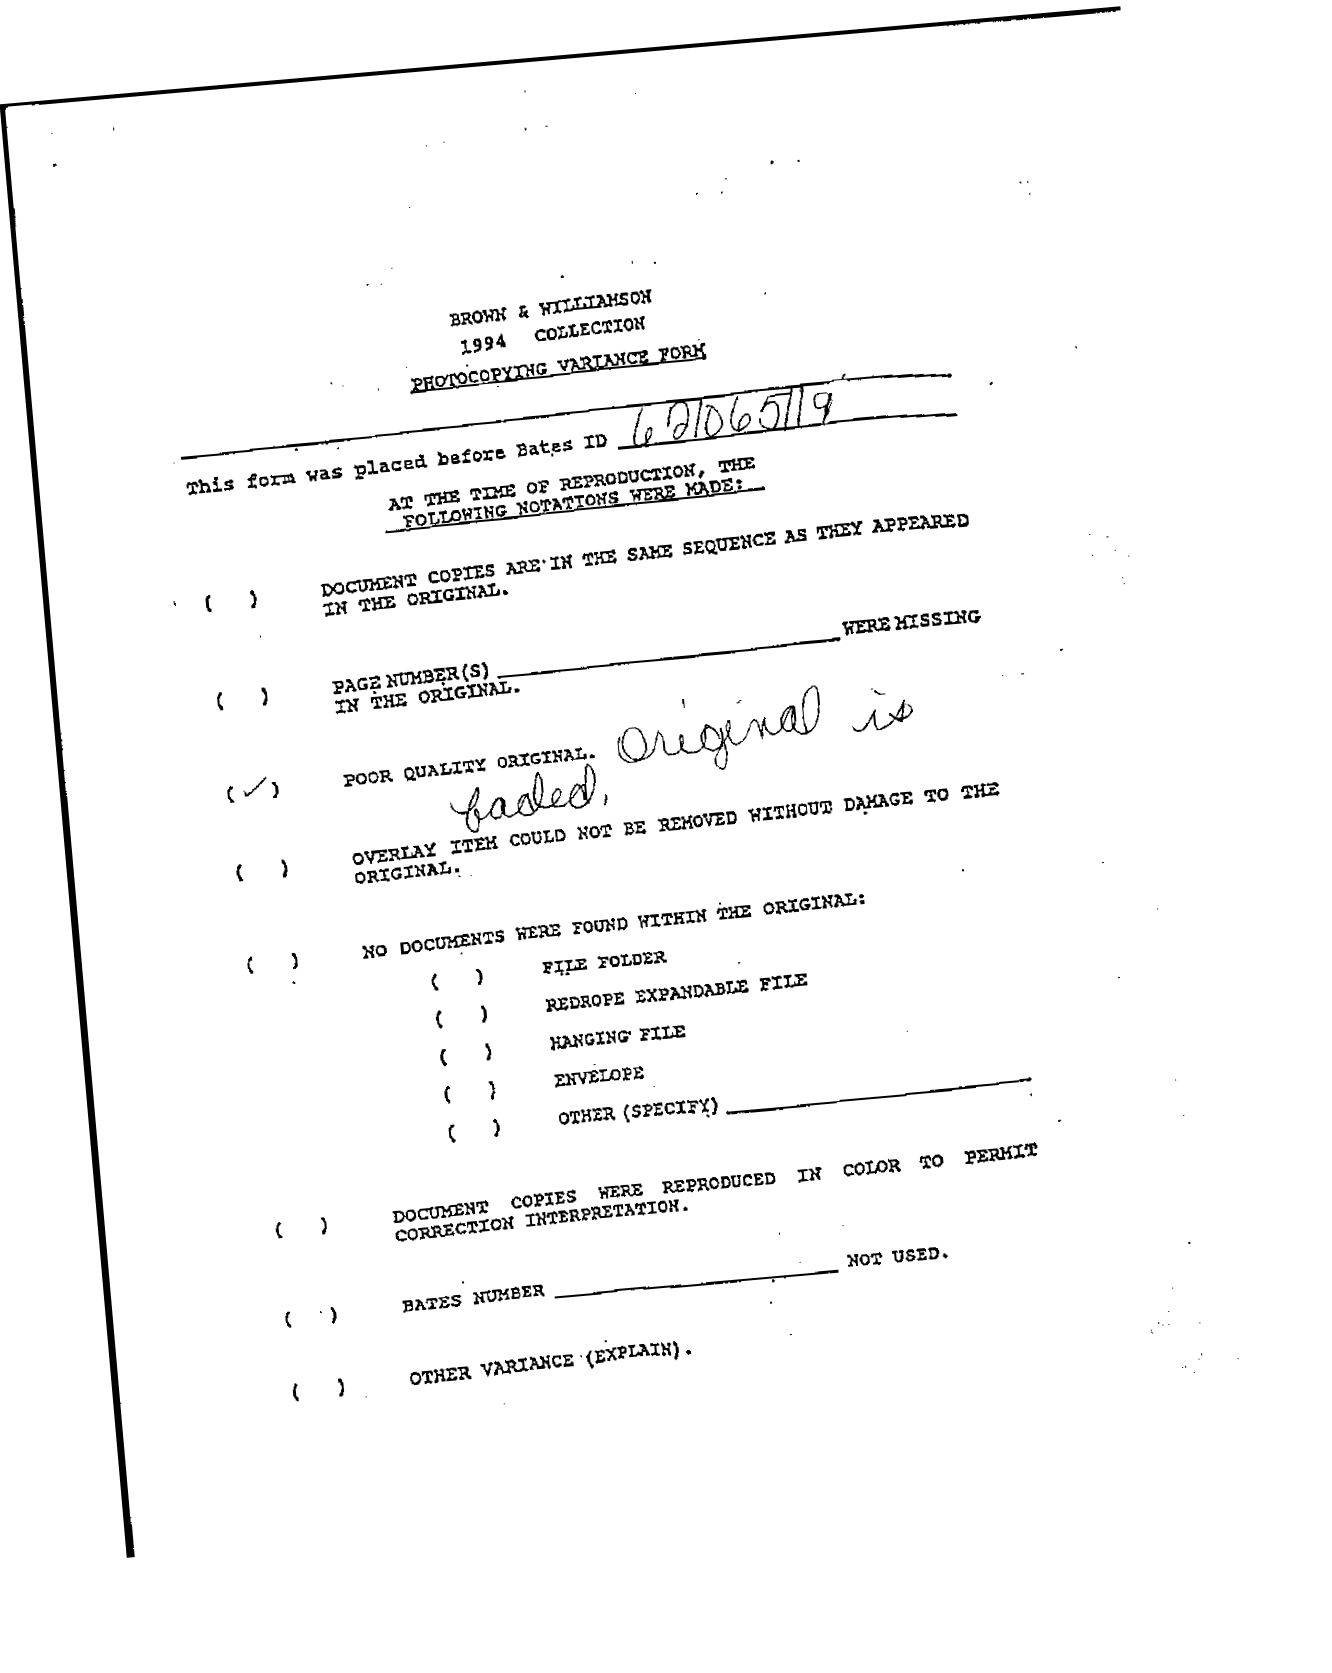 BROWN & WILLIAMSON
1994 COLLECTION
PHOTOCOPYING VARIANCE FORM
This form was placed before Bates ID 621065119
AT THE TIME OF REPRODUCTION, THE
FOLLOWING NOTATIONS WERE MADE:
( ) DOCUMENT COPIES ARE IN THE SAME SEQUENCE AS THEY APPEARED
IN THE ORIGINAL.
( ) PAGE NUMBER(S) WERE MISSING
IN THE ORIGINAL.
(✓) POOR QUALITY ORIGINAL. Original is
faded.
( ) OVERLAY ITEM COULD NOT BE REMOVED WITHOUT DAMAGE TO THE
ORIGINAL.
( ) NO DOCUMENTS WERE FOUND WITHIN THE ORIGINAL:
( ) FILE FOLDER
( ) REDROPE EXPANDABLE FILE
( ) HANGING FILE
( ) ENVELOPE
( ) OTHER (SPECIFY)
( ) DOCUMENT COPIES WERE REPRODUCED IN COLOR TO PERMIT
CORRECTION INTERPRETATION.
( ) BATES NUMBER NOT USED.
( ) OTHER VARIANCE (EXPLAIN).